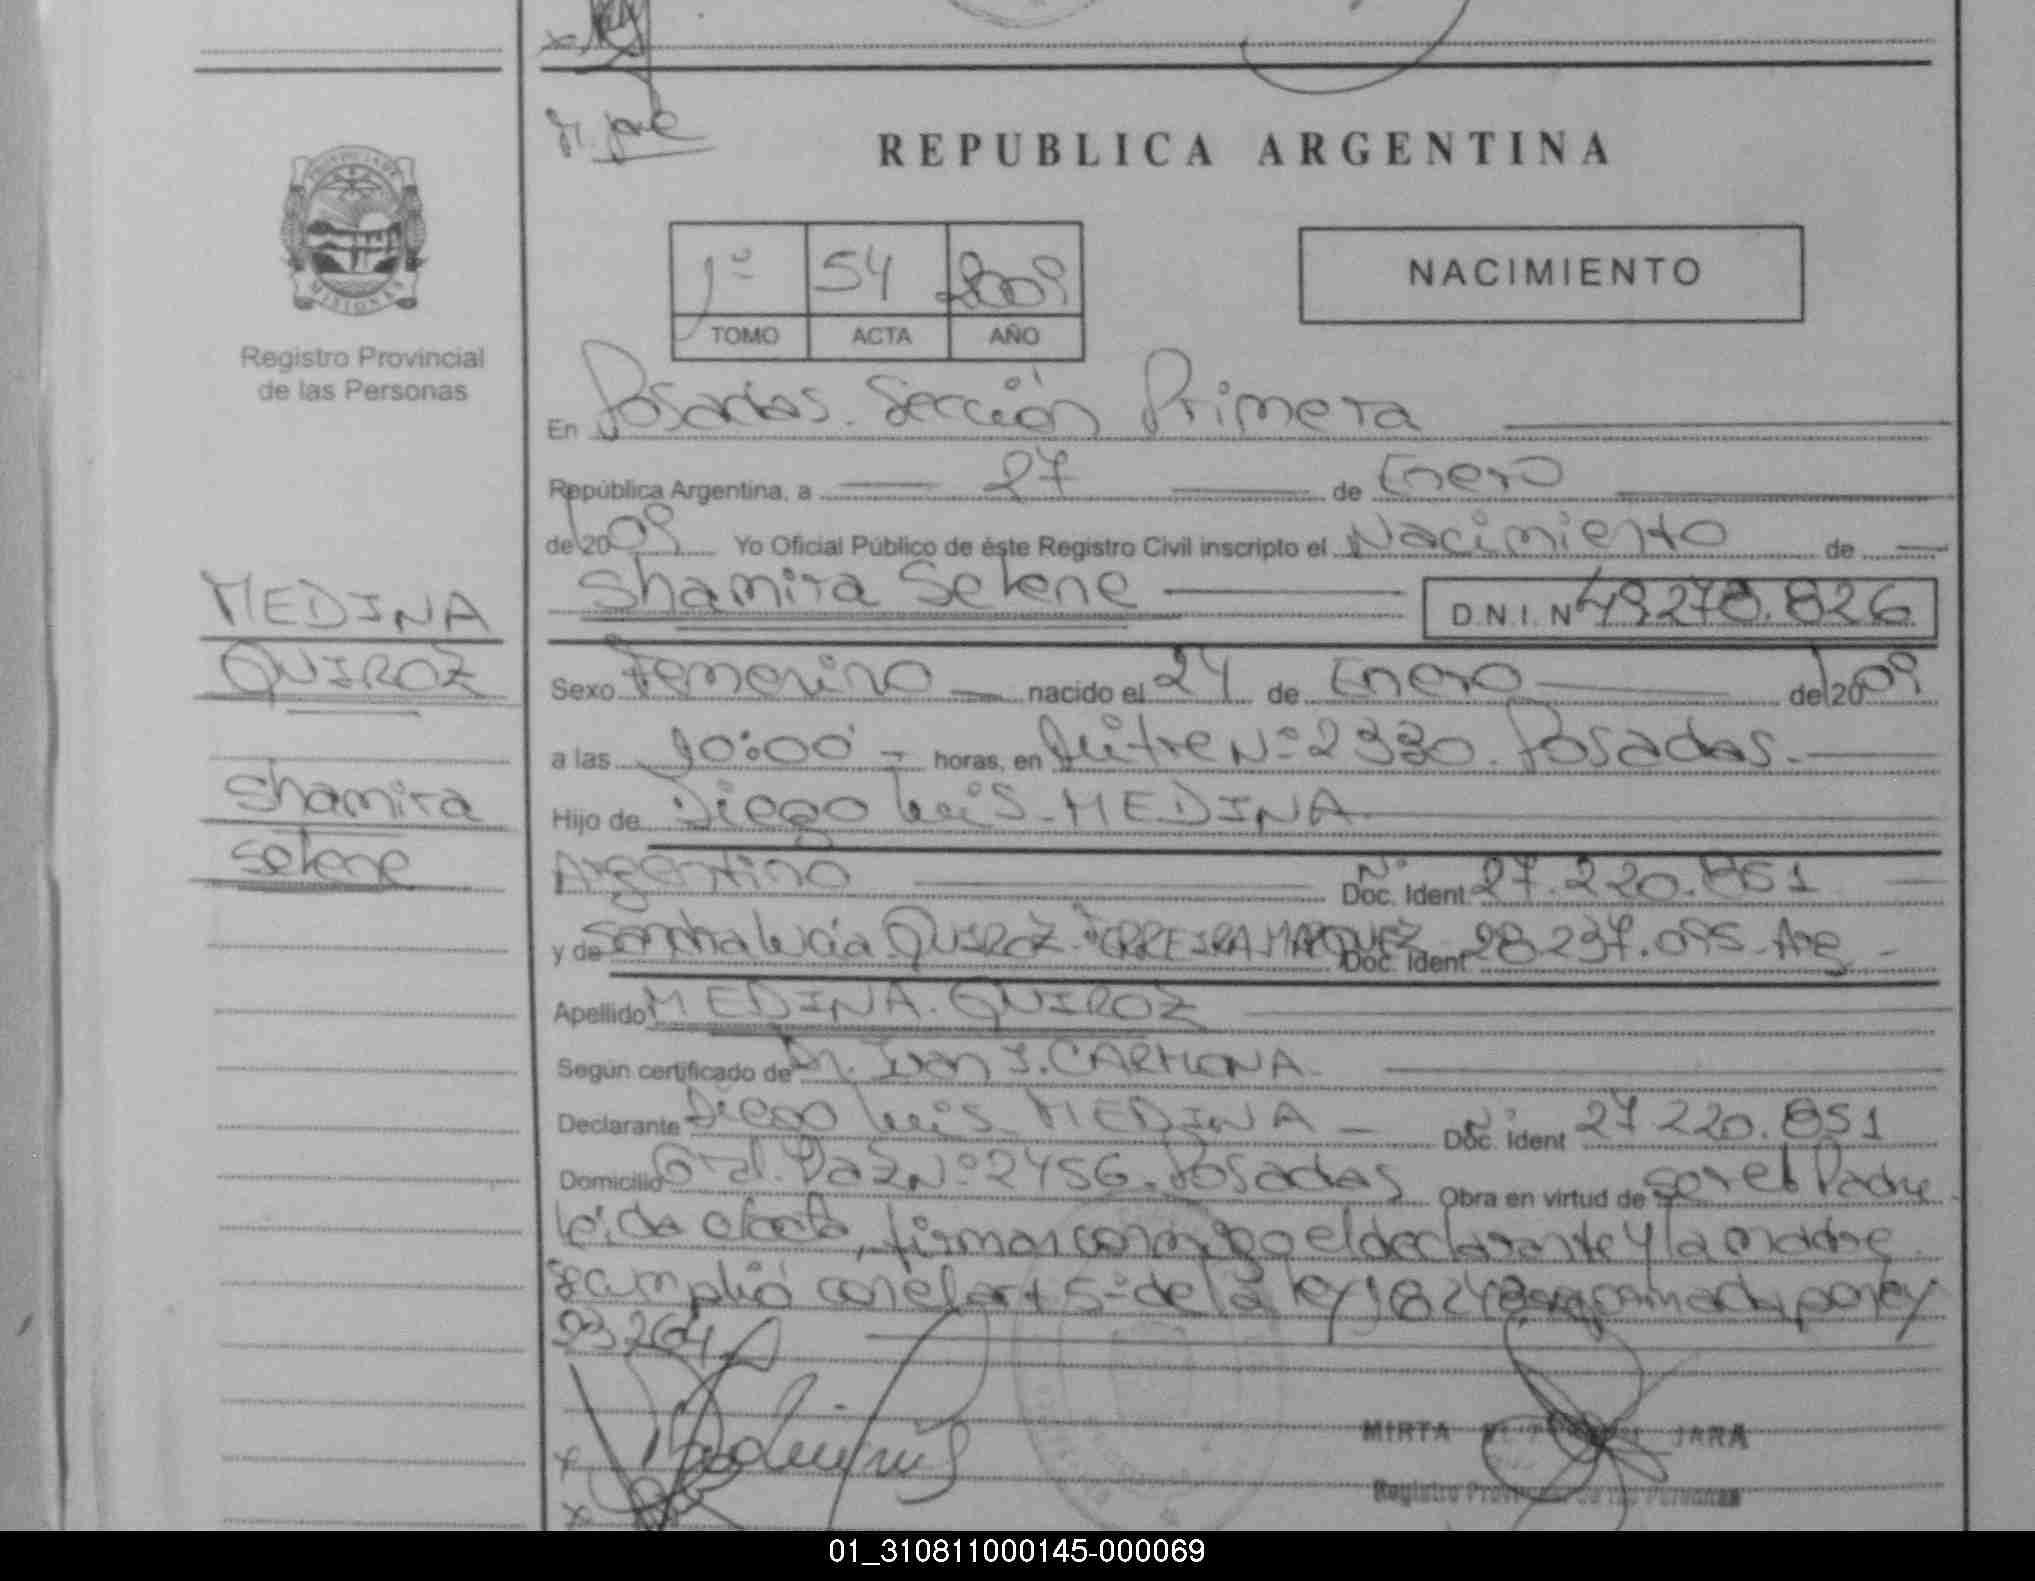 Sn. José
REPUBLICA ARGENTINA
PROVINCIA DE
MISIONES
Registro Provincial
de las Personas
1º 54 2009
TOMO ACTA AÑO
NACIMIENTO
En Posadas. Sección Primera
República Argentina, a 27 de Enero
de 2009 Yo Oficial Público de éste Registro Civil inscripto el Nacimiento de
Shamira Selene D.N.I. Nº 49.278.826
MEDINA
QUIROZ
Shamira
Selene
Sexo Femenino nacido el 24 de Enero de 2009
a las 10:00 - horas, en Mitre Nº 2330. Posadas.
Hijo de Diego Luis MEDINA
Argentino Nº Doc. Ident 27.220.851
y de Sandra Lucia QUIROZ FERREIRA MARQUEZ Doc. Ident 28.237.095 Arg -
Apellido MEDINA. QUIROZ
Según certificado de Dr. Ivan J. CARMONA
Declarante Diego Luis MEDINA - Doc. Ident 27.220.851
Domicilio Gral. Paz Nº 2456. Posadas Obra en virtud de ser el Padre
leida el acta, firman conmigo el declarante y la madre
se cumplió con el art 5º de la ley 18248 por ley
23264
MIRTA JARA
Registro Provincial de las Personas
01_310811000145-000069